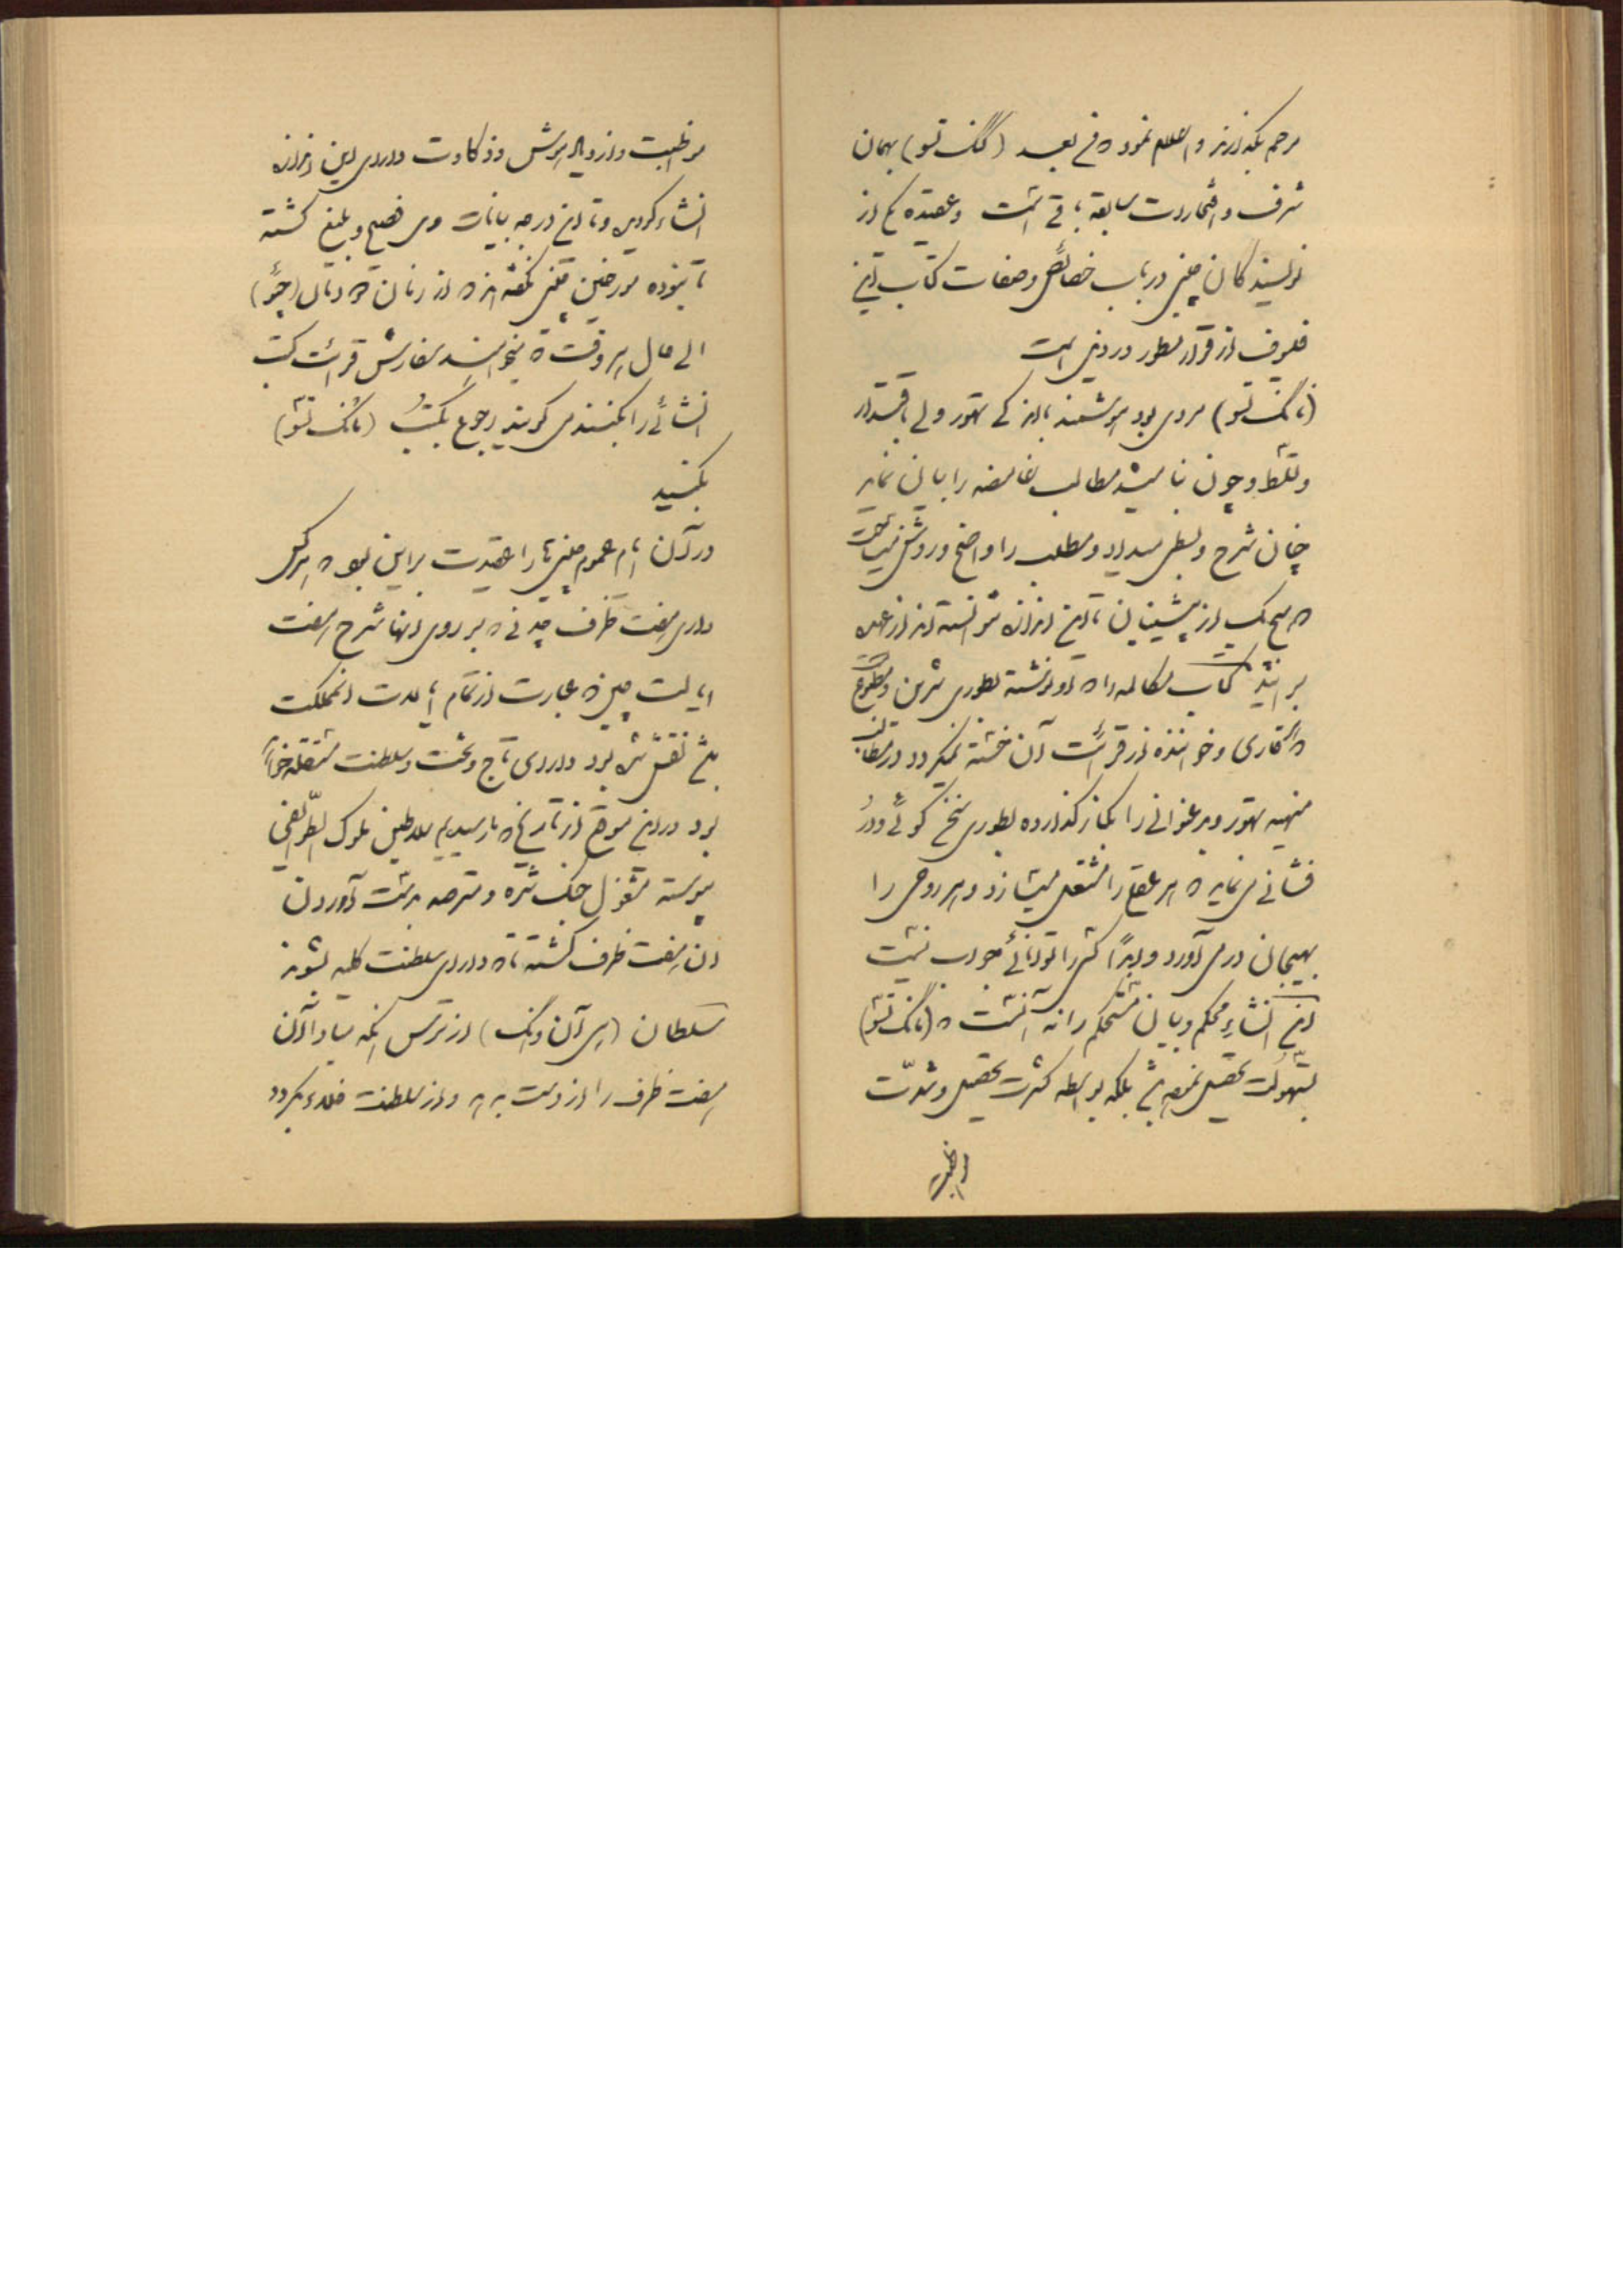 مرحم بگذارند و اعلام نمود که فی بعد (کنگ تسو) بهمان
شرف و افتخارات سابقه باقی است و عقیده یکی از
نویسندگان چینی در باب خصائص و صفات کتاب این
فیلسوف از قرار مسطور در ذیل است
(مانگ تسو) مردی بود هوشمند با اندکی تهور ولی با اقتدار
و تسلط و چون بنا میشد مطالب غامضه را بیان نماید
چنان شرح و بسط میداد و مطلب را واضح و روشن میساخت
که هیچ یک از پیشینیان تا این اندازه نتوانسته اند از عهده
برآیند کتاب مکالمه را که او نوشته بطوری شیرین و مطبوع
که قاری و خواننده از قرائت آن خسته نمیگردد در مطالب
مهیه تهور و هر عنوانی را که آغاز گذارده بطوری سخن گوئی و در
فشانی می نماید که هر عقلی را مشتعل میسازد و هر روحی را
بهیجان در می آورد و ابداً کسی را توانائی جواب نیست
این انشاء محکم و بیان مستحکم را نه آنست که (مانگ تسو)
بسهولت تحصیل نموده باشد بلکه بواسطه کثرت تحصیل و شدت
مواظبت
مواظبت و ازدیاد هوش و ذکاوت دارای این اندازه
انشاء گردیده و تا این درجه بیانات وی فصیح و بلیغ گشته
تا بنوده مورخین چینی گفته اند که از زمان قدما تا (چئو)
الی حال هر وقت که میخواهند سفارش قرائت کتب
انشائی را بکنند می گویند رجوع بکتب (مانگ تسو)
بکنید
در آن ایام عموم چینی ها را عقیدت بر این بود که هر کس
دارای هفت ظرف چدنی که بر روی آنها شرح هفت
ایالت چین که عبارت از تمام ایالات آن مملکت
باشد نقش شده بود دارای تاج و تخت و سلطنت مستقله خواهد
بود در این موقع از تاریخ که ما رسیدیم سلاطین ملوک الطوایفی
پیوسته مشغول جنگ شده و مترصد بدست آوردن
آن هفت ظرف گشته تا که دارای سلطنت کلیه بشوند
سلطان (هی آن وانگ) از ترس آنکه مبادا آن
هفت ظرف را از دست بدهد و از سلطنت خلع گردد